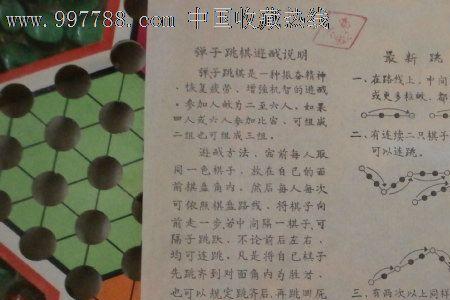 www.997788.com 中国收藏热线
弹子跳棋遊戏说明
弹子跳棋是一种振奋精神
、恢复疲劳、增强机智的遊戏
。参加人数为二至六人。如果
四人或六人参加比赛、可组成
二组也可组成三组。
遊戏方法、赛前每人取
同一色棋子、放在自己的面
前棋盘角内、然后每人每次
可依照棋盘路线、将棋子向
前走一步、若中间隔一棋子、可
隔子跳跃、不论前后左右、
均可连跳、凡是将自己棋子
先跳齐到对面角内为胜方、
也可以规定跳齐后、再跳
最新跳
一、在路线上、中间
或更多粒数、都
二、有连续二只棋子
可以连跳。
三、有两次以上同样